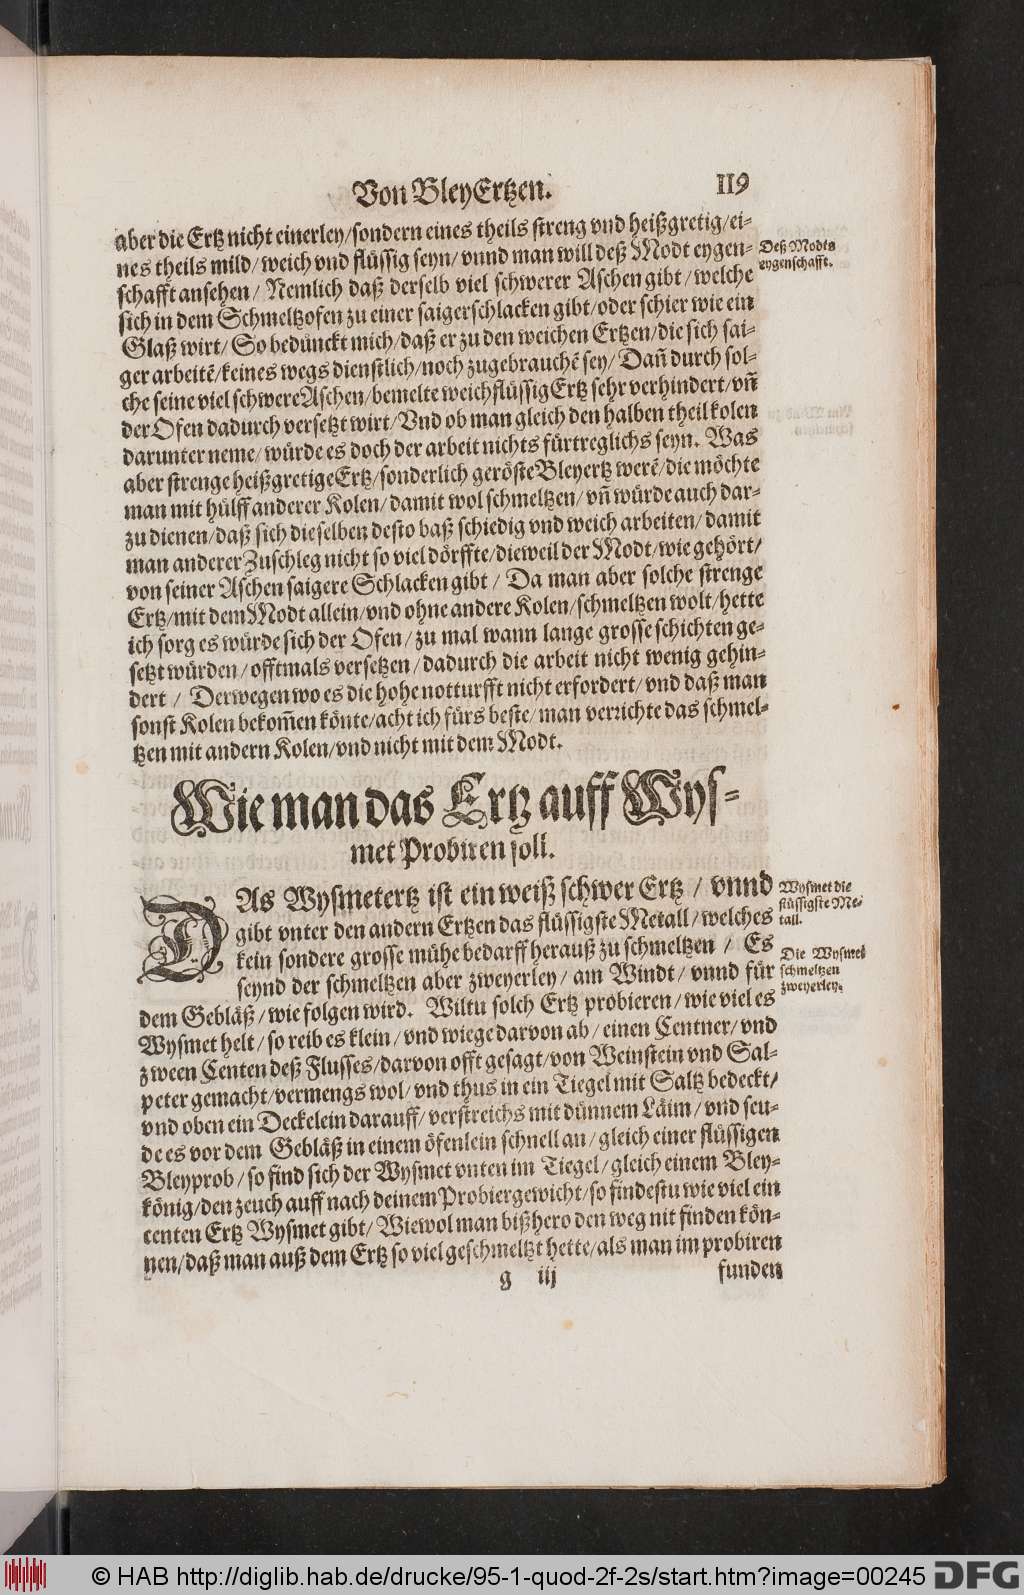 Von BleyErtzen.
119
aber die Ertz nicht einerley/sondern eines theils streng vnd heißgretig/ei-
nes theils mild/weich vnd flüssig seyn/vnnd man will deß Modt eygen-
schafft ansehen/ Nemlich daß derselb viel schwerer Aschen gibt/welche
sich in dem Schmeltzofen zu einer saigerschlacken gibt/oder schier wie ein
Glaß wirt/ So bedünckt mich/daß er zu den weichen Ertzen/die sich sai-
ger arbeitẽ/keines wegs dienstlich/noch zugebrauchẽ sey/ Dañ durch sol-
che seine viel schwere Aschen/bemelte weichflüssig Ertz sehr verhindert/vñ
der Ofen dadurch versetzt wirt/ Vnd ob man gleich den halben theil kolen
darunter neme/würde es doch der arbeit nichts fürtreglichs seyn. Was
aber strenge heißgretige Ertz/sonderlich geröste Bleyertz werẽ/die möchte
man mit hülff anderer Kolen/damit wol schmeltzen/vñ würde auch dar-
zu dienen/daß sich dieselben desto baß schiedig vnd weich arbeiten/damit
man anderer Zuschleg nicht so viel dörffte/dieweil der Modt/wie gehört/
von seiner Aschen saigere Schlacken gibt/ Da man aber solche strenge
Ertz/mit dem Modt allein/vnd ohne andere Kolen/schmeltzen wolt/hette
ich sorg es würde sich der Ofen/zu mal wann lange grosse schichten ge-
setzt würden/offtmals versetzen/dadurch die arbeit nicht wenig gehin-
dert/ Derwegen wo es die hohe notturfft nicht erfordert/vnd daß man
sonst Kolen bekom̃en könte/acht ich fürs beste/man verrichte das schmel-
tzen mit andern Kolen/vnd nicht mit dem Modt.
Deß Modts
eygenschafft.
Wie man das Ertz auff Wys-
met Probiren soll.
DAs Wysmetertz ist ein weiß schwer Ertz/vnnd
gibt vnter den andern Ertzen das flüssigste Metall/welches
kein sondere grosse mühe bedarff herauß zu schmeltzen/ Es
seynd der schmeltzen aber zweyerley/am Windt/vnnd für
dem Gebläß/wie folgen wird. Wiltu solch Ertz probieren/wie viel es
Wysmet helt/so reib es klein/vnd wiege darvon ab/einen Centner/vnd
zween Centen deß Flusses/darvon offt gesagt/von Weinstein vnd Sal-
peter gemacht/vermengs wol/vnd thus in ein Tiegel mit Saltz bedeckt/
vnd oben ein Deckelein darauff/verstreichs mit dünnem Läim/vnd seu-
de es vor dem Gebläß in einem öfenlein schnell an/gleich einer flüssigen
Bleyprob/so find sich der Wysmet vnten im Tiegel/gleich einem Bley-
könig/den zeuch auff nach deinem Probiergewicht/so findestu wie viel ein
centen Ertz Wysmet gibt/Wiewol man bißhero den weg nit finden kön-
nen/daß man auß dem Ertz so viel geschmeltzt hette/als man im probiren
Wysmet die
flüssigste Me-
tall.
Die Wysmet
schmeltzen
zweyerley.
g iij
funden
© HAB http://diglib.hab.de/drucke/95-1-quod-2f-2s/start.htm?image=00245
DFG